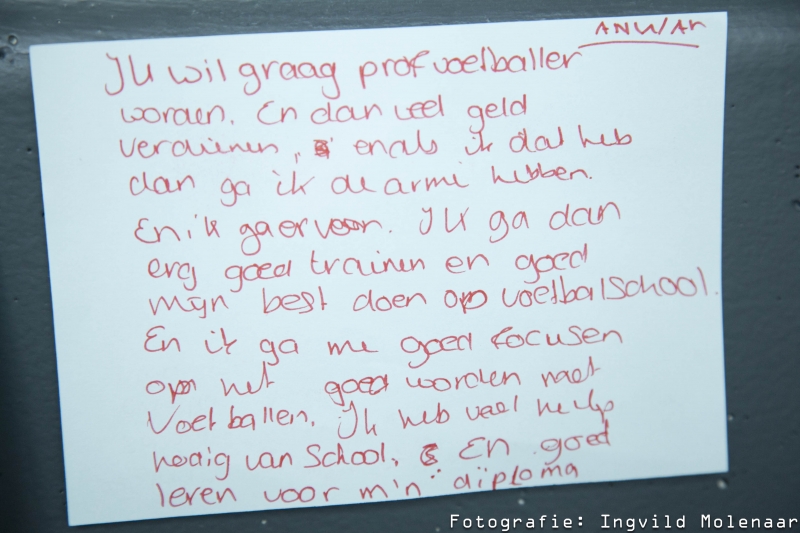 ANWAR
Ik wil graag profvoetballer
worden. En dan veel geld
verdienen, en als ik dat heb
dan ga ik de armi hebben.
En ik ga ervoor. Ik ga dan
erg goed trainen en goed
mijn best doen op voetbalschool.
En ik ga me goed focusen
op het goed worden met
Voetballen. Ik heb veel help
nodig van School. En goed
leren voor m'n diploma
Fotografie: Ingvild Molenaar